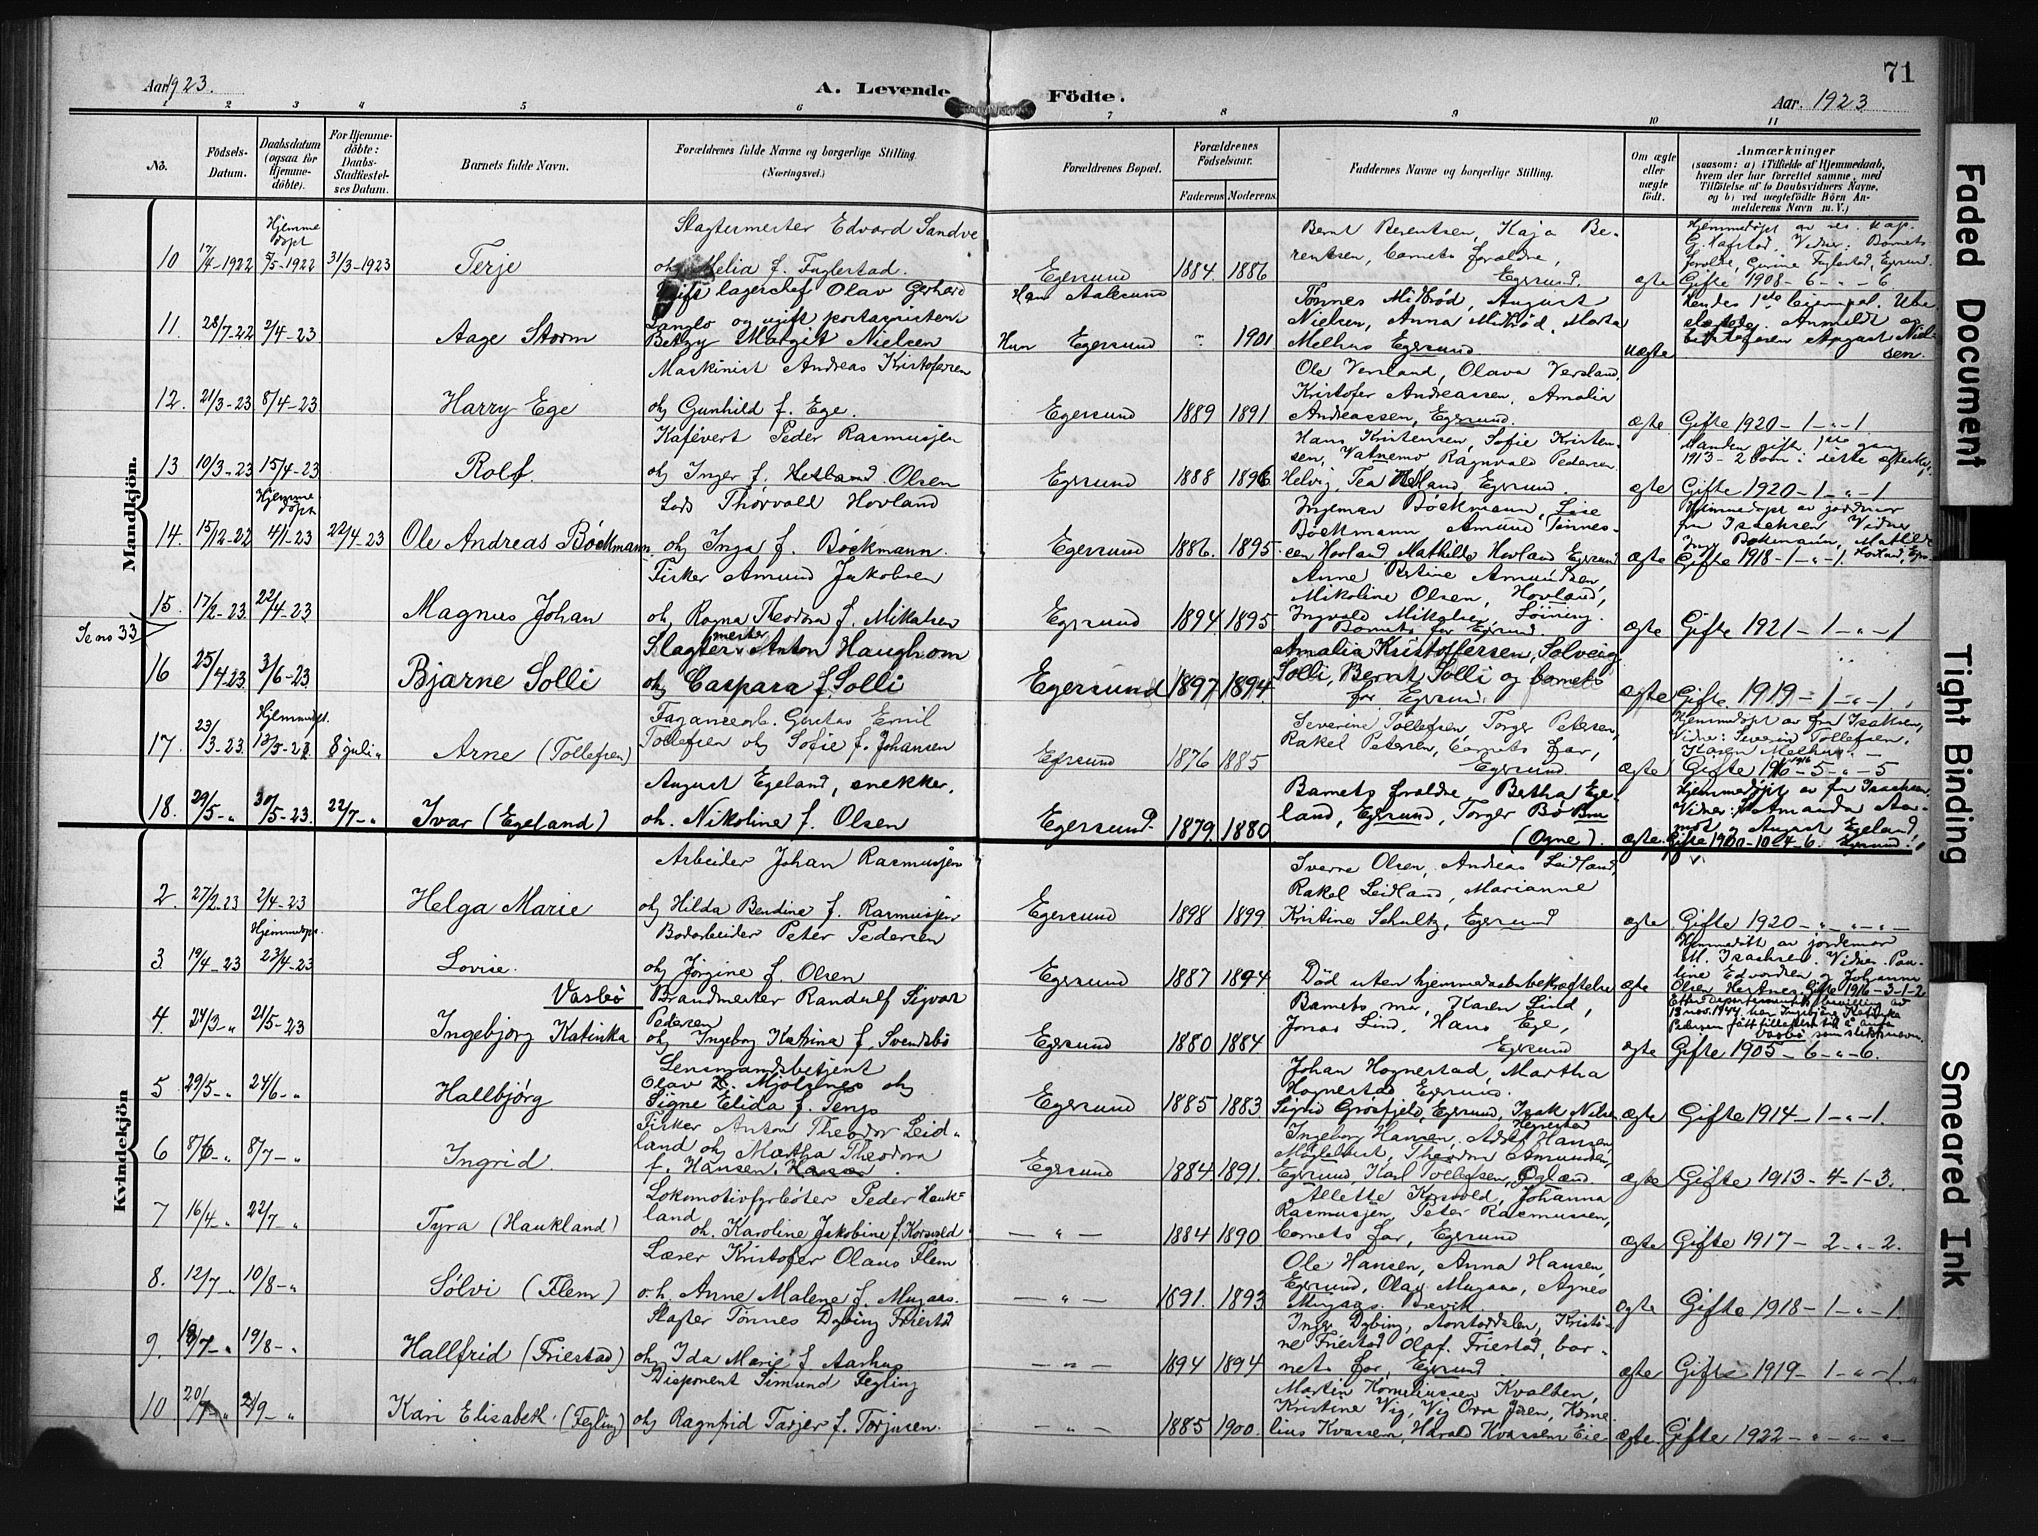 71
Aar 1923.
A. Levende Födte.
Aar. 1923
1 2 3 4 5 6 7 8 9 10 11
No.
Födsels-Datum.
Daabsdatum (ogsaa for Hjemme-döbte).
For Hjemme-döbte: Daabs-Stadfæstel-ses Datum.
Barnets fulde Navn.
Forældrenes fulde Navne og borgerlige Stilling.
(Næringsvei.)
Forældrenes Bopæl.
Forældrenes Födselsaar.
Faderens Moderens
Faddernes Navne og borgerlige Stilling.
Om ægte eller uægte födt.
Anmærkninger
(saasom: a) i Tilfælde af Hjemmedaab,
hvem der har forrettet samme, med
Tilföielse af to Daabsvidners Navne,
og b) ved uægtefödte Börn An-
melderens Navn m. V.)
Mandkjön.
10 17/4-1922 Hjemme døpt 5/5-1922 31/3-1923 Terje
Slagtermester Edvard Sandve
og Melia f. Fuglestad.
Egersund 1884. 1886
Bernt Berentsen, Kaja Be-
rentsen, barnets foreldre,
Egersund.
ægte
Hjemmedøpt av res. kap.
G. Hafstad. Vidner: Barnets
forældre, Gurine Fuglestad, Egersund.
Gifte 1908-6-"-6.
11. 28/7-22 2/4-23 Aage Storm
Ugift lagerchef Olav Gerhard
Langlo og ugift postassistent
Betzy Margit Nielsen
Han Aalesund
Hun Egersund ? 1901
Tønnes Midbrød, August
Nielsen, Anna Midbrød, Marta
Melhus Egersund
uægte
12. 21/3-23 8/4-23 Harry Ege
Maskinist Andreas Kristofersen
og Gunhild f. Ege.
Egersund 1889 1891
Ole Versland, Olava Versland,
Kristofer Andreassen, Amalia
Andreassen, Egersund.
ægte Gifte 1920-1-"-1.
13 10/3-23 15/4-23 Rolf.
Kafévert Peder Rasmussen
og Inger f. Olsen
Egersund 1888 1896
Hans Kristensen, Sofie Kristen-
sen, Vatnemo Ragnvald Pedersen
Helvig, Tea Egersund.
ægte
Manden gift 1ste gang
1913-2 barn:
Gifte 1920-1-"-1
14. 15/12-22 Hjemme døpt 4/1-23 22/4-23 Ole Andreas Bøckmann
Lods Thorvald Hovland
og Inga f. Bøckmann.
Egersund 1886. 1895.
Ingeman Bøckmann, Lise
Bøckmann Amund Tønnes-
sen Hovland Mathilde Hovland Egersund
ægte
Hjemmedøpt av jordmor
fru Isachsen Vidner
Inga Bøckmann, Mathilde
Hovland, Egersund
Gifte 1918-1-"-1.
15. 17/2-23 22/4-23 Magnus Johan
Fisker Amund Jakobsen
og Ragna Theodora f. Mikalsen
Egersund 1894. 1895
Anne Bertine Amundsen,
Mikoline Olsen, Hovland,
Ingvald Mikalsen,
Barnets far Egersund.
ægte Gifte 1921-1-"-1
Se no 33
16 25/4-23 3/6-23 Bjarne Solli
Slagtermester Anton Haughom
og Caspara f. Solli
Egersund 1897 1894.
Amalia Kristoffersen, Solveig
Solli, Bernt Solli og barnets
far Egersund.
ægte Gifte 1919-1-"-1.
17. 23/3-23. Hjemmedøpt. 13/5-23 8 juli " Arne (Tollefsen)
Fajansearb. Gustav Emil
Tollefsen og Sofie f. Johansen
Egersund 1876 1885
Severine Tollefsen, Torger Petersen,
Rakel Petersen, barnets far,
Egersund.
ægte
Hjemmedøpt av fru Isaksen,
Vidner: Severine Tollefsen,
Karen Melhus. -
Gifte 1916-5-"-5
18. 29/5-" 30/5-23. 22/7-" Ivar (Egeland)
August Egeland, snekker.
og. Nikoline f. Olsen
Egersund. 1879. 1880
Barnets forældre, Bertha Ege-
land, Egersund, Torger Bø Bru
(Ogne).
ægte.
Hjemmedøpt av fru Isachsen
Vidner: Amanda Aar-
mot og August Egeland,
Egersund.
Gifte 1900-10-4-6.
Kvindekjön
2. 27/2-23 2/4-23 Helga Marie
Arbeider Johan Rasmussen
og Hilda Bendine f. Rasmussen
Egersund 1898 1899.
Sverre Olsen, Andreas Leidland,
Rakel Leidland, Marianne
Kristine Schultz, Egersund
ægte. Gifte 1920-"-"-"-
3. 19/4-23 Hjemmedøpt. 23/4-23 Lovise.
Bodarbeider Peter Pedersen
og Jørgine f. Olsen
Egersund 1887 1894
Død uten hjemmedaabsbekræftelse
ægte
Hjemmedøbt av jordemor
M. Isachsen. Vidner: Pau-
line Edvardsen og Johanne
Olsen Gifte 1916-3-1-2
4. 24/3-" 21/5-23 Ingebjørg Katinka Vasbø
Brandmester Randulf Sigvart
Pedersen
og Ingeborg Katrina f. Svendsbø
Egersund 1880 1884
Barnets mor, Karen Lind,
Jonas Lind, Hans Ege,
Egersund
ægte
Efter Departementets bevilling av
13 nov. 1944 har Ingebjørg Katinka
Pedersen fått tillatelse til å anta
Vasbø som slektsnavn.
Gifte 1905-6-"-6.
5 29/5-" 24/6-" Hallbjørg
Lensmandsbetjent
Olav Mjølsnes og
Signe Elida f. Tengs
Egersund 1885 1883
Johan Hognestad, Martha
Hognestad Egersund.
Sigrid Grøsfjeld, Egersund, Isak Nilsen
Hegrestad
ægte Gifte 1914-1-"-1.
6 8/6-" 8/7-" Ingrid.
Fisker Anton Theodor Leid-
land og Martha Theodora
f. Hansen.
Egersund 1884 1891.
Ingeborg Hansen, Adolf Hansen,
Theodor Amundsen,
Egersund, Karl Tollefsen, Ogland
ægte Gifte 1913-4-1-3.
7 16/4-" 22/7-" Tyra (Haukland)
Lokomotivfyrbøter Peder Hauk-
land
og. Karoline Jakobine f. Korsvold
-"- 1884 1890
Allette Korsvold, Johanna
Rasmussen, Peter Rasmussen,
barnets far, Egersund
ægte Gifte 1917-2-"-2.
8. 12/7-" 10/8-" Sølvi (Flem)
Lærer Kristofer Olaus Flem
o.h. Anne Malene f. Mugaas.
-"- 1891. 1893
Ole Hansen, Anna Hansen,
Egersund, Olav Mugaas, Agnes
Mugaas. Brevik.
ægte Gifte 1918-1-"-1.
9. 18/7-" 19/8-" Hallfrid (Friestad)
Slagter Tønnes Dybing Friestad
og Ida Marie f. Aarhus
-"- 1894 1894
Inger Dybing, Kristi-
ne Friestad Olaf. Friestad, bar-
nets far, Egersund
ægte Gifte 1919-1-"-1.
10 20/7-" 2/9-" Kari Elisabeth (Fegling)
Disponent Simund Fegling
og Ragnfrid Tarjer f. Torjusen.
-"- 1885 1900.
Martin Korneliussen Kvalten,
Kristine Vig, Vig Orre Jæren, Korne-
lius Kvassem, Harald Kvassem Eie-
ægte Gifte 1922-"-"-"-
Faded Document
Tight Binding
Smeared Ink